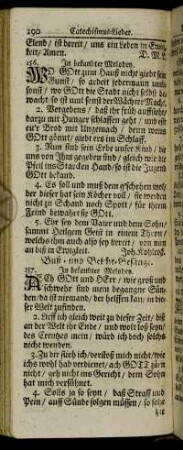 190 Catechismus-Lieder.
Elend/ ist bereit/ uns ein Leben in Ewig-
keit/ Amen. D. M. L.
156. In bekandter Melodey.
WO GOtt zum Hauß nicht giebt sein
Gunst/ so arbeit jedermann umb-
sonst/ wo GOtt die Stadt nicht selbst be-
wacht/ so ist umb sonst der Wächter Macht.
2. Vergebens/ daß ihr früh auffstehet/
darzu mit Hunger schlaffen geht/ und eßt
eu'r Brod mit Ungemach/ denn wems
GOtt gönnt/ giebt ers im Schlaff.
3. Nun sind sein Erbe unsre Kind/ die
uns von Ihm gegeben sind/ gleich wie die
Pfeil ins Starcken Hand/ so ist die Jugend
GOtt bekandt.
4. Es soll und muß dem geschehen wol/
der dieser hat sein Köcher voll/ sie werden
nicht zu Schand noch Spott/ für ihrem
Feind bewahrt sie GOtt.
5. Ehr sey dem Vater und dem Sohn/
sammt Heilgem Geist in einem Thron/
welches ihm auch also sey bereit/ von nun
an biß in Ewigkeit. Joh. Kohlroß.
Buß- und Beicht-Gesänge.
157. In bekandter Melodey.
ACh GOtt und HErr/ wie groß und
schwehr sind mein begangne Sün-
den/ da ist niemand/ der helffen kan/ in die-
ser Welt zufinden.
2. Lieff ich gleich weit zu dieser Zeit/ biß
an der Welt ihr Ende/ und wolt loß seyn/
des Creutzes mein/ würd ich doch solchs
nicht wenden.
3. Zu dir flieh ich/ verstoß mich nicht/ wie
ichs wohl hab verdienet/ ach GOTT zürn
nicht/ geh nicht ins Gericht/ dein Sohn
hat mich versühnet.
4. Solls ja so seyn/ daß Straff und
Pein/ auff Sünde folgen müssen/ so fahr
hie